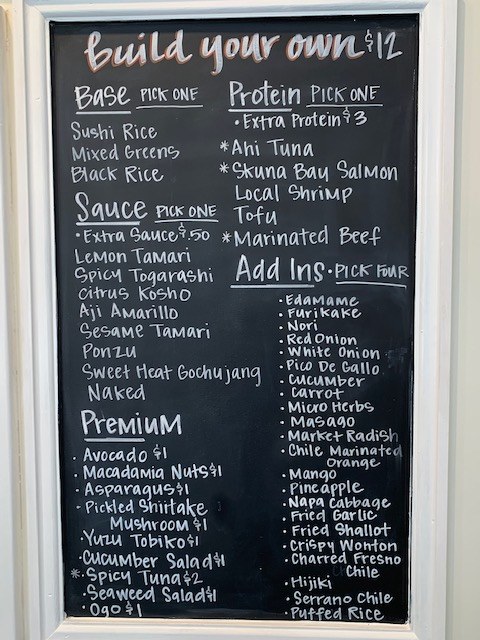 Build your own $12
Base PICK ONE
Sushi Rice
Mixed Greens
Black Rice
Sauce PICK ONE
• Extra Sauce $.50
Lemon Tamari
Spicy Togarashi
Citrus Kosho
Aji Amarillo
Sesame Tamari
Ponzu
Sweet Heat Gochujang
Naked
Premium
• Avocado $1
• Macadamia Nuts $1
• Asparagus $1
• Pickled Shiitake
Mushroom $1
• Yuzu Tobiko $1
• Cucumber Salad $1
* • Spicy Tuna $2
• Seaweed Salad $1
• Ogo $1
Protein PICK ONE
• Extra Protein $3
* Ahi Tuna
* Skuna Bay Salmon
Local Shrimp
Tofu
* Marinated Beef
Add Ins • PICK FOUR
• Edamame
• Furikake
• Nori
• Red Onion
• White Onion
• Pico De Gallo
• Cucumber
• Carrot
• Micro Herbs
• Masago
• Market Radish
• Chile Marinated
Orange
• Mango
• Pineapple
• Napa Cabbage
• Fried Garlic
• Fried Shallot
• Crispy Wonton
• Charred Fresno
Chile
• Hijiki
• Serrano Chile
• Puffed Rice